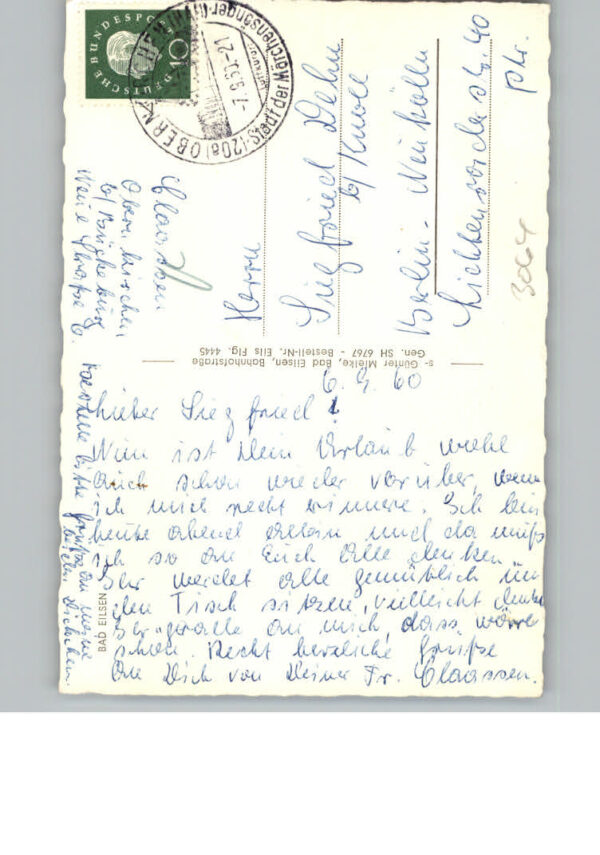 DEUTSCHE BUNDESPOST
10
(20a) OBERNKIRCHEN
Stadt der Märchensänger
7.9.60-21
Claassen
Obernkirchen
b/Bückeburg
Neue Straße 6.
Herrn
Siegfried Dehn
b/ Knoll
Berlin-Neukölln
str. 40
Ptr.
3064
Günter Mielke, Bad Eilsen, Bahnhofstraße
Gen. SH 6767 - Bestell-Nr. Eils Flg. 4445
BAD EILSEN
6.9.60
Lieber Siegfried!
Nun ist Dein Urlaub wohl
auch schon wieder vorüber, wenn
ich mich recht erinnere. Ich bin
heute abend allein und da muß
ich so an Euch alle denken.
Ihr werdet alle gemütlich um
den Tisch sitzen, vielleicht denkt
Ihr grade an mich, dass wäre
schön. Recht herzliche Grüße
an Dich von Deiner Fr. Claassen.
bitte Grüße an